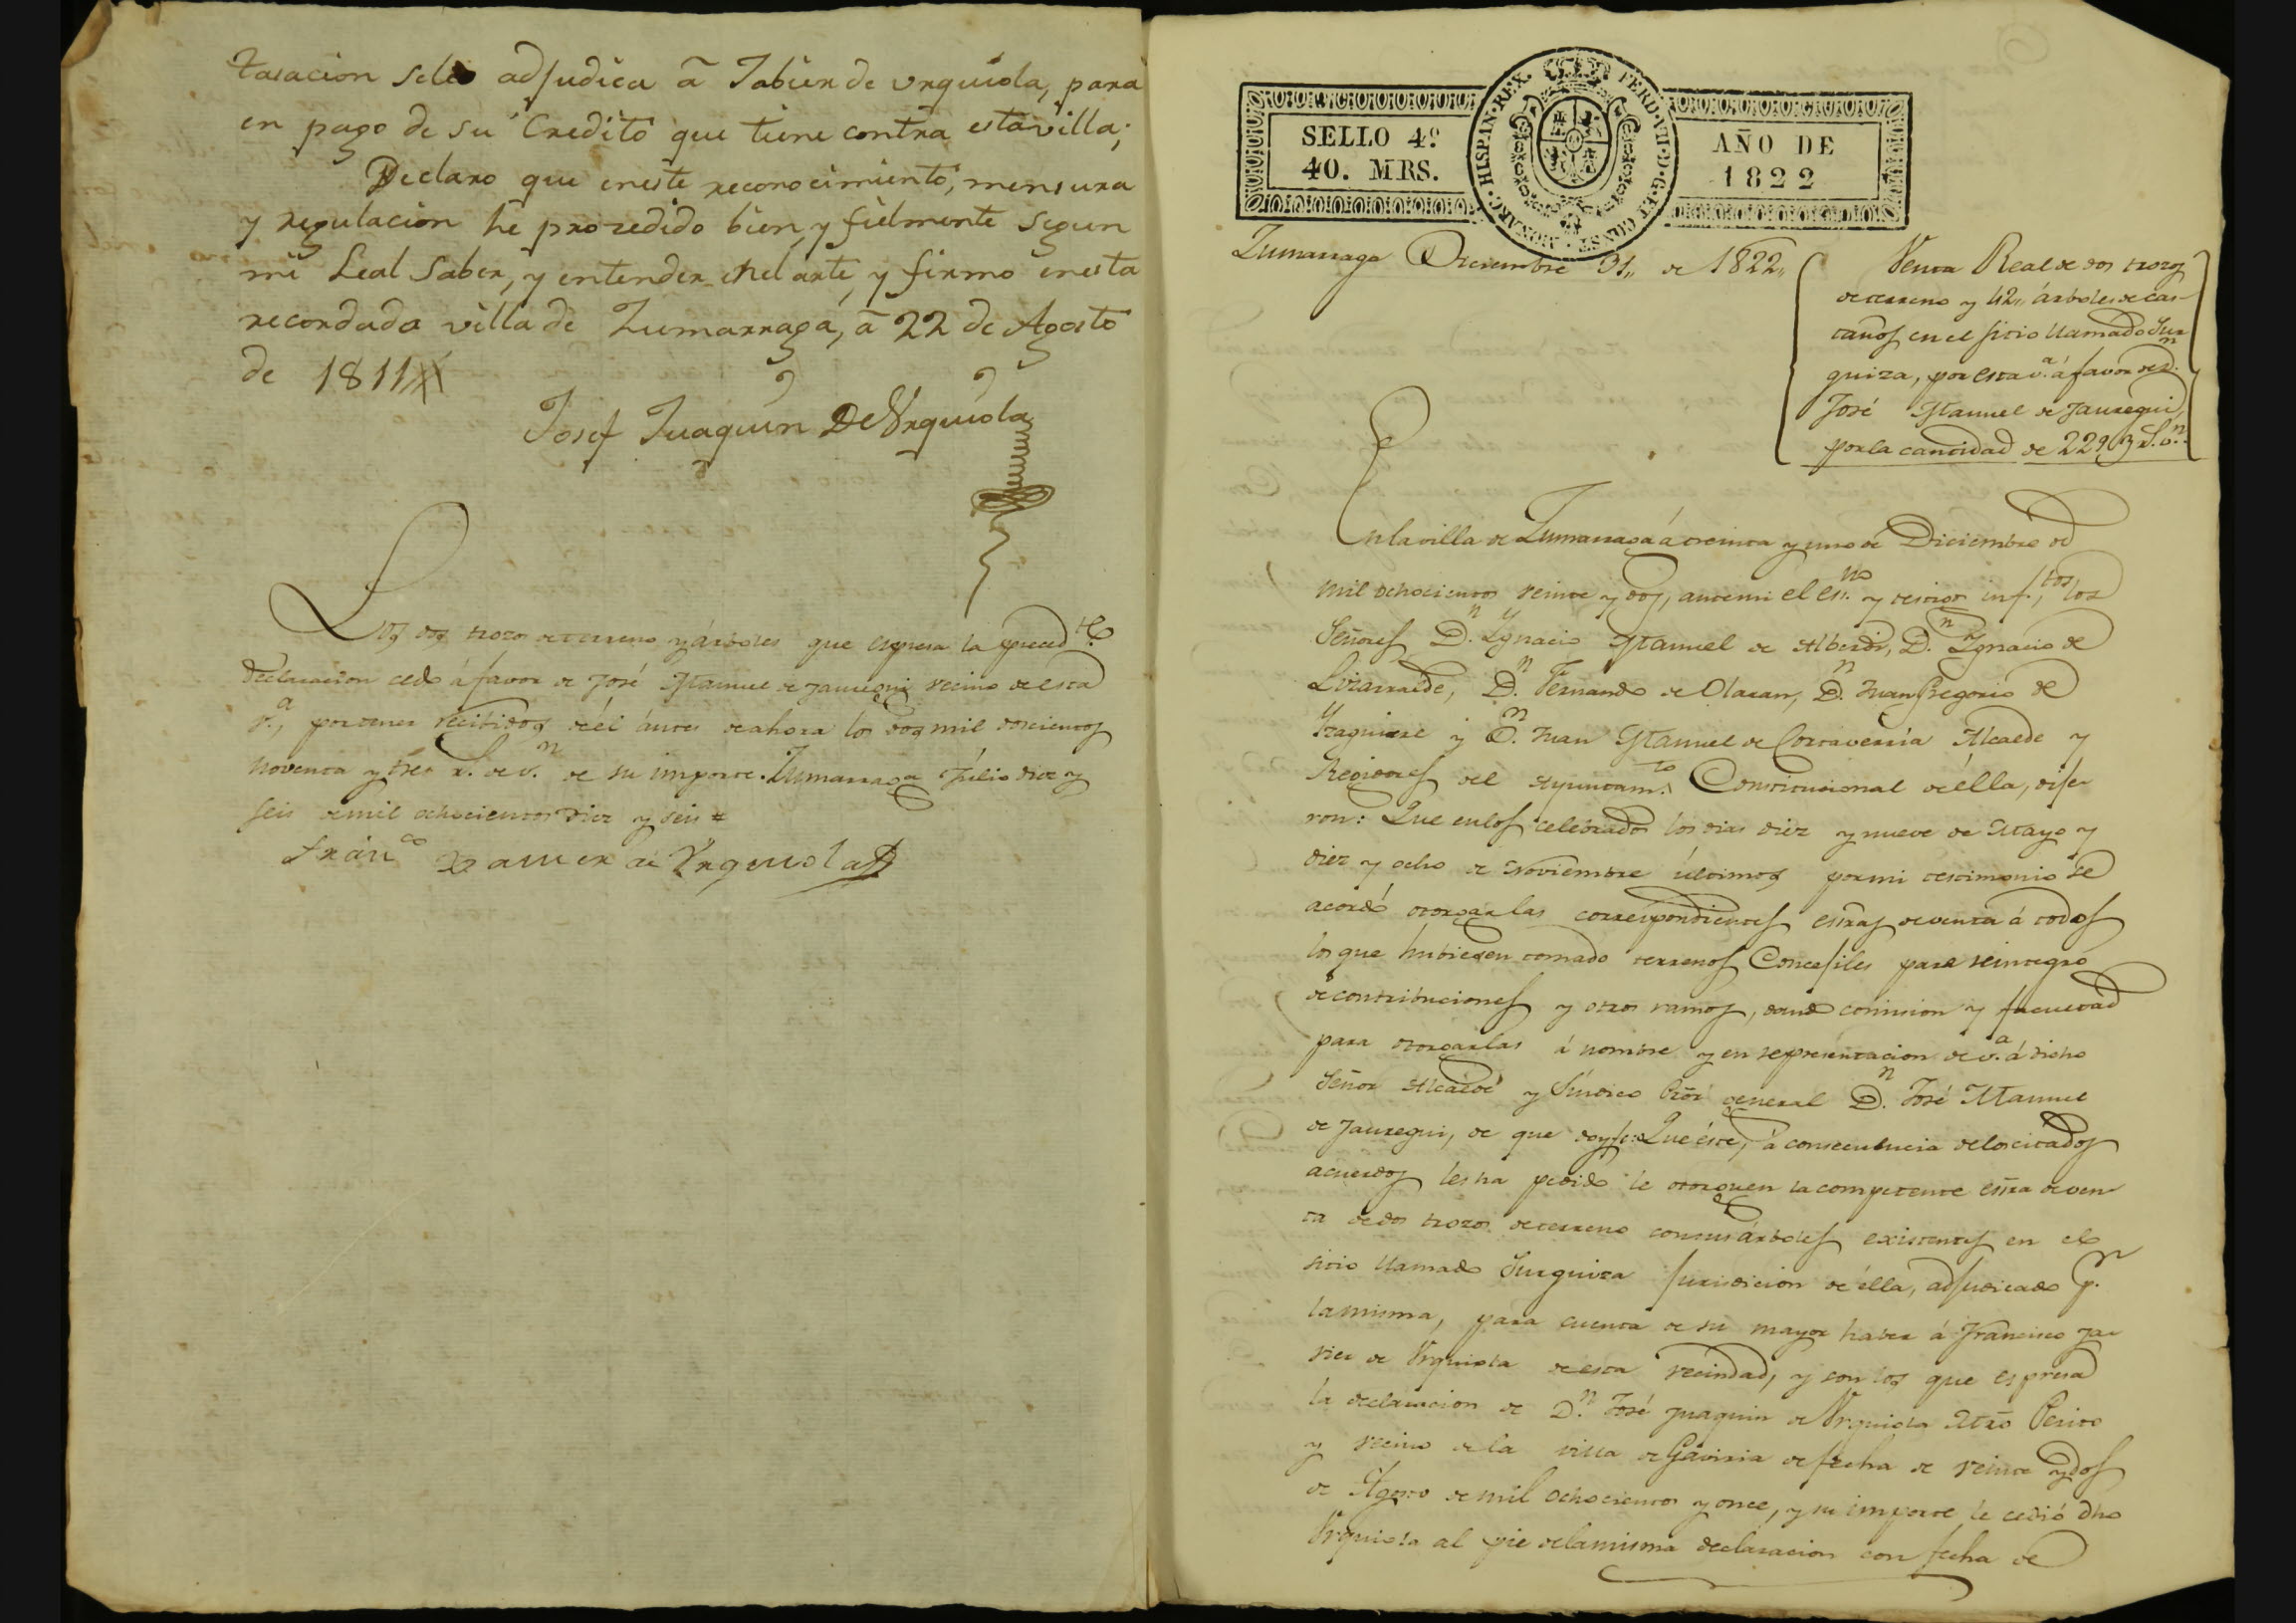 tasacion sele adjudica á Jabier de Urquiola, para
en pago de su Credito que tiene contra esta villa;
Declaro que eneste reconocimiento, mensura
y regulacion he prozedido bien, y fielmente segun
mi Leal Saber, y entender enel arte, y firmo enesta
recordada villa de Zumarraga, á 22 de Agosto
de 1811
Josef Juaquin De Urquiola
Los dos trozos de terreno y árboles que espresa la preced.te
declaracion cedo á favor de José Manuel de Jauregui vecino de esta
v.a, por tener recibidos de él ántes de ahora los dos mil doscientos
noventa y tres r.s de v.n de su importe. Zumarraga Júlio diez y
seis de mil ochocientos diez y seis =
Fran.co Xavier de Urquiola
HISPAN·REX· FERD·VII·D·G·ET CONST· MONARC·
SELLO 4º
40. MRS.
AÑO DE
1822
Zumarraga Diciembre 31,, de 1822,,
Venta Real de dos trozos
de terreno y 42,, árboles de cas-
taños en el sitio llamado Sur
guiza, por esta v.a á favor de D.n
José Manuel de Jauregui,
por la cantidad de 2293 r.s v.n
En la villa de Zumarraga á treinta y uno de Diciembre de
mil ochocientos veinte y dos, ante mi el es.no y testigos inf.tos, los
Señores D.n Ygnacio Manuel de Alberdi, D.n Ygnacio de
Lizarralde, D.n Fernando de Olaran, D.n Juan Gregorio de
Yzaguirre y D.n Juan Manuel de Cortaverria Alcalde y
Regidores del Ayuntam.to Constitucional de élla, dije-
ron: Que en los celebrados los dias diez y nueve de Mayo y
diez y ocho de Noviembre últimos por mi testimonio se
acordó otorgar las correspondientes esrras de venta á todos
los que hubiesen tomado terrenos Concejiles para reintegro
de contribuciones y otros ramos, dando comision y facultad
para otorgarlas á nombre y en representacion de v.a á dicho
Señor Alcalde y Síndico Pror general D.n José Manuel
de Jauregui, de que doy fe: Que éste, á consecuencia de los citados
acuerdos les ha pedido le otorguen la competente esrra de ven-
ta de dos trozos de terreno con sus árboles existentes en el
sitio llamado Surguiza jurisdicion de élla, adjudicado p.r
la misma, para cuenta de su mayor haber á Francisco Ja-
vier de Urquiola de esta vecindad, y son los que espresa
la declaracion de D.n José Juaquin de Urquiola Mtro Perito
y vecino de la villa de Gaviria de fecha de veinte y dos
de Agosto de mil ochocientos y once, y su importe le cedió dho
Urquiola al pie de la misma declaracion con fecha de